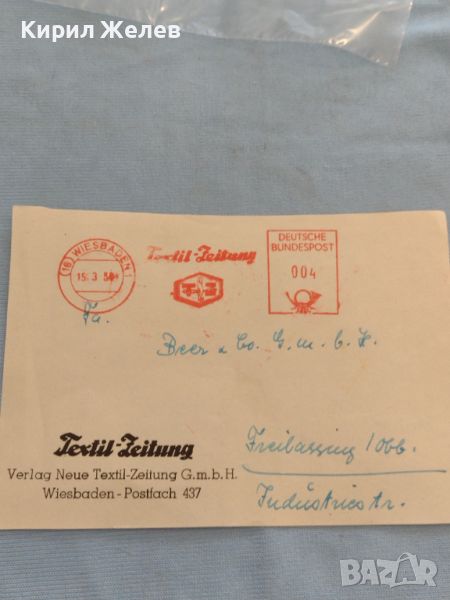 Кирил Желев
(16) WIESBADEN 1
15. 3 5
Textil-Zeitung
DEUTSCHE
BUNDESPOST
004
Fa.
Beer & Co. G. m. b. H.
Textil-Zeitung
Verlag Neue Textil-Zeitung G.m.b.H.
Wiesbaden - Postfach 437
Freilassing / Obb.
Industriestr.
BAZAR